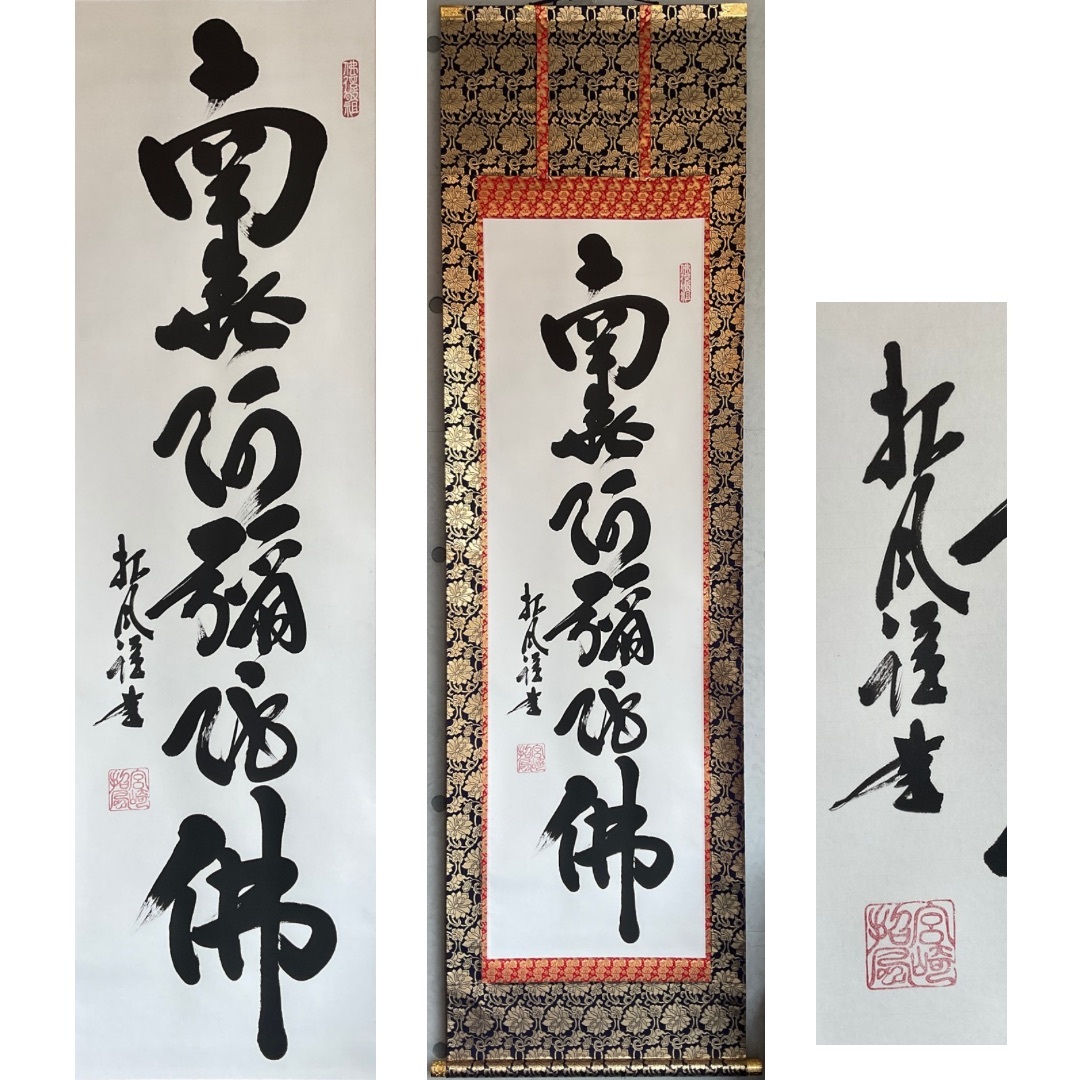 南無阿彌陀佛
招風謹書
宮崎
招風
南無阿彌陀佛
招風謹書
宮崎
招風
招風謹書
宮崎
招風